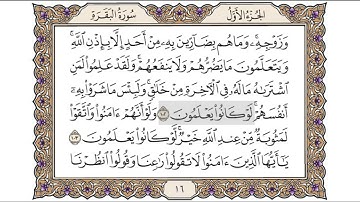 الجزء الأول
سورة البقرة
وَزَوْجِهِۦ ۚ وَمَا هُم بِضَآرِّينَ بِهِۦ مِنْ أَحَدٍ إِلَّا بِإِذْنِ ٱللَّهِ ۚ
وَيَتَعَلَّمُونَ مَا يَضُرُّهُمْ وَلَا يَنفَعُهُمْ ۚ وَلَقَدْ عَلِمُوا۟ لَمَنِ
ٱشْتَرَىٰهُ مَا لَهُۥ فِى ٱلْـَٔاخِرَةِ مِنْ خَلَـٰقٍ ۚ وَلَبِئْسَ مَا شَرَوْا۟ بِهِۦٓ
أَنفُسَهُمْ ۚ لَوْ كَانُوا۟ يَعْلَمُونَ ١٠٢ وَلَوْ أَنَّهُمْ ءَامَنُوا۟ وَٱتَّقَوْا۟
لَمَثُوبَةٌ مِّنْ عِندِ ٱللَّهِ خَيْرٌ ۖ لَّوْ كَانُوا۟ يَعْلَمُونَ ١٠٣
يَـٰٓأَيُّهَا ٱلَّذِينَ ءَامَنُوا۟ لَا تَقُولُوا۟ رَٰعِنَا وَقُولُوا۟ ٱنظُرْنَا
١٦